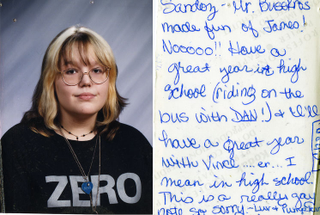 ZERO
Sandoz-- Mr. Busskros
made fun of James!
Nooooo!! Have a
great year in high
school (riding on the
bus with DAN!) & I'll
have a great year
with Vince.....er...I
mean in high school.
This is a really gay
note so sorry -Luv